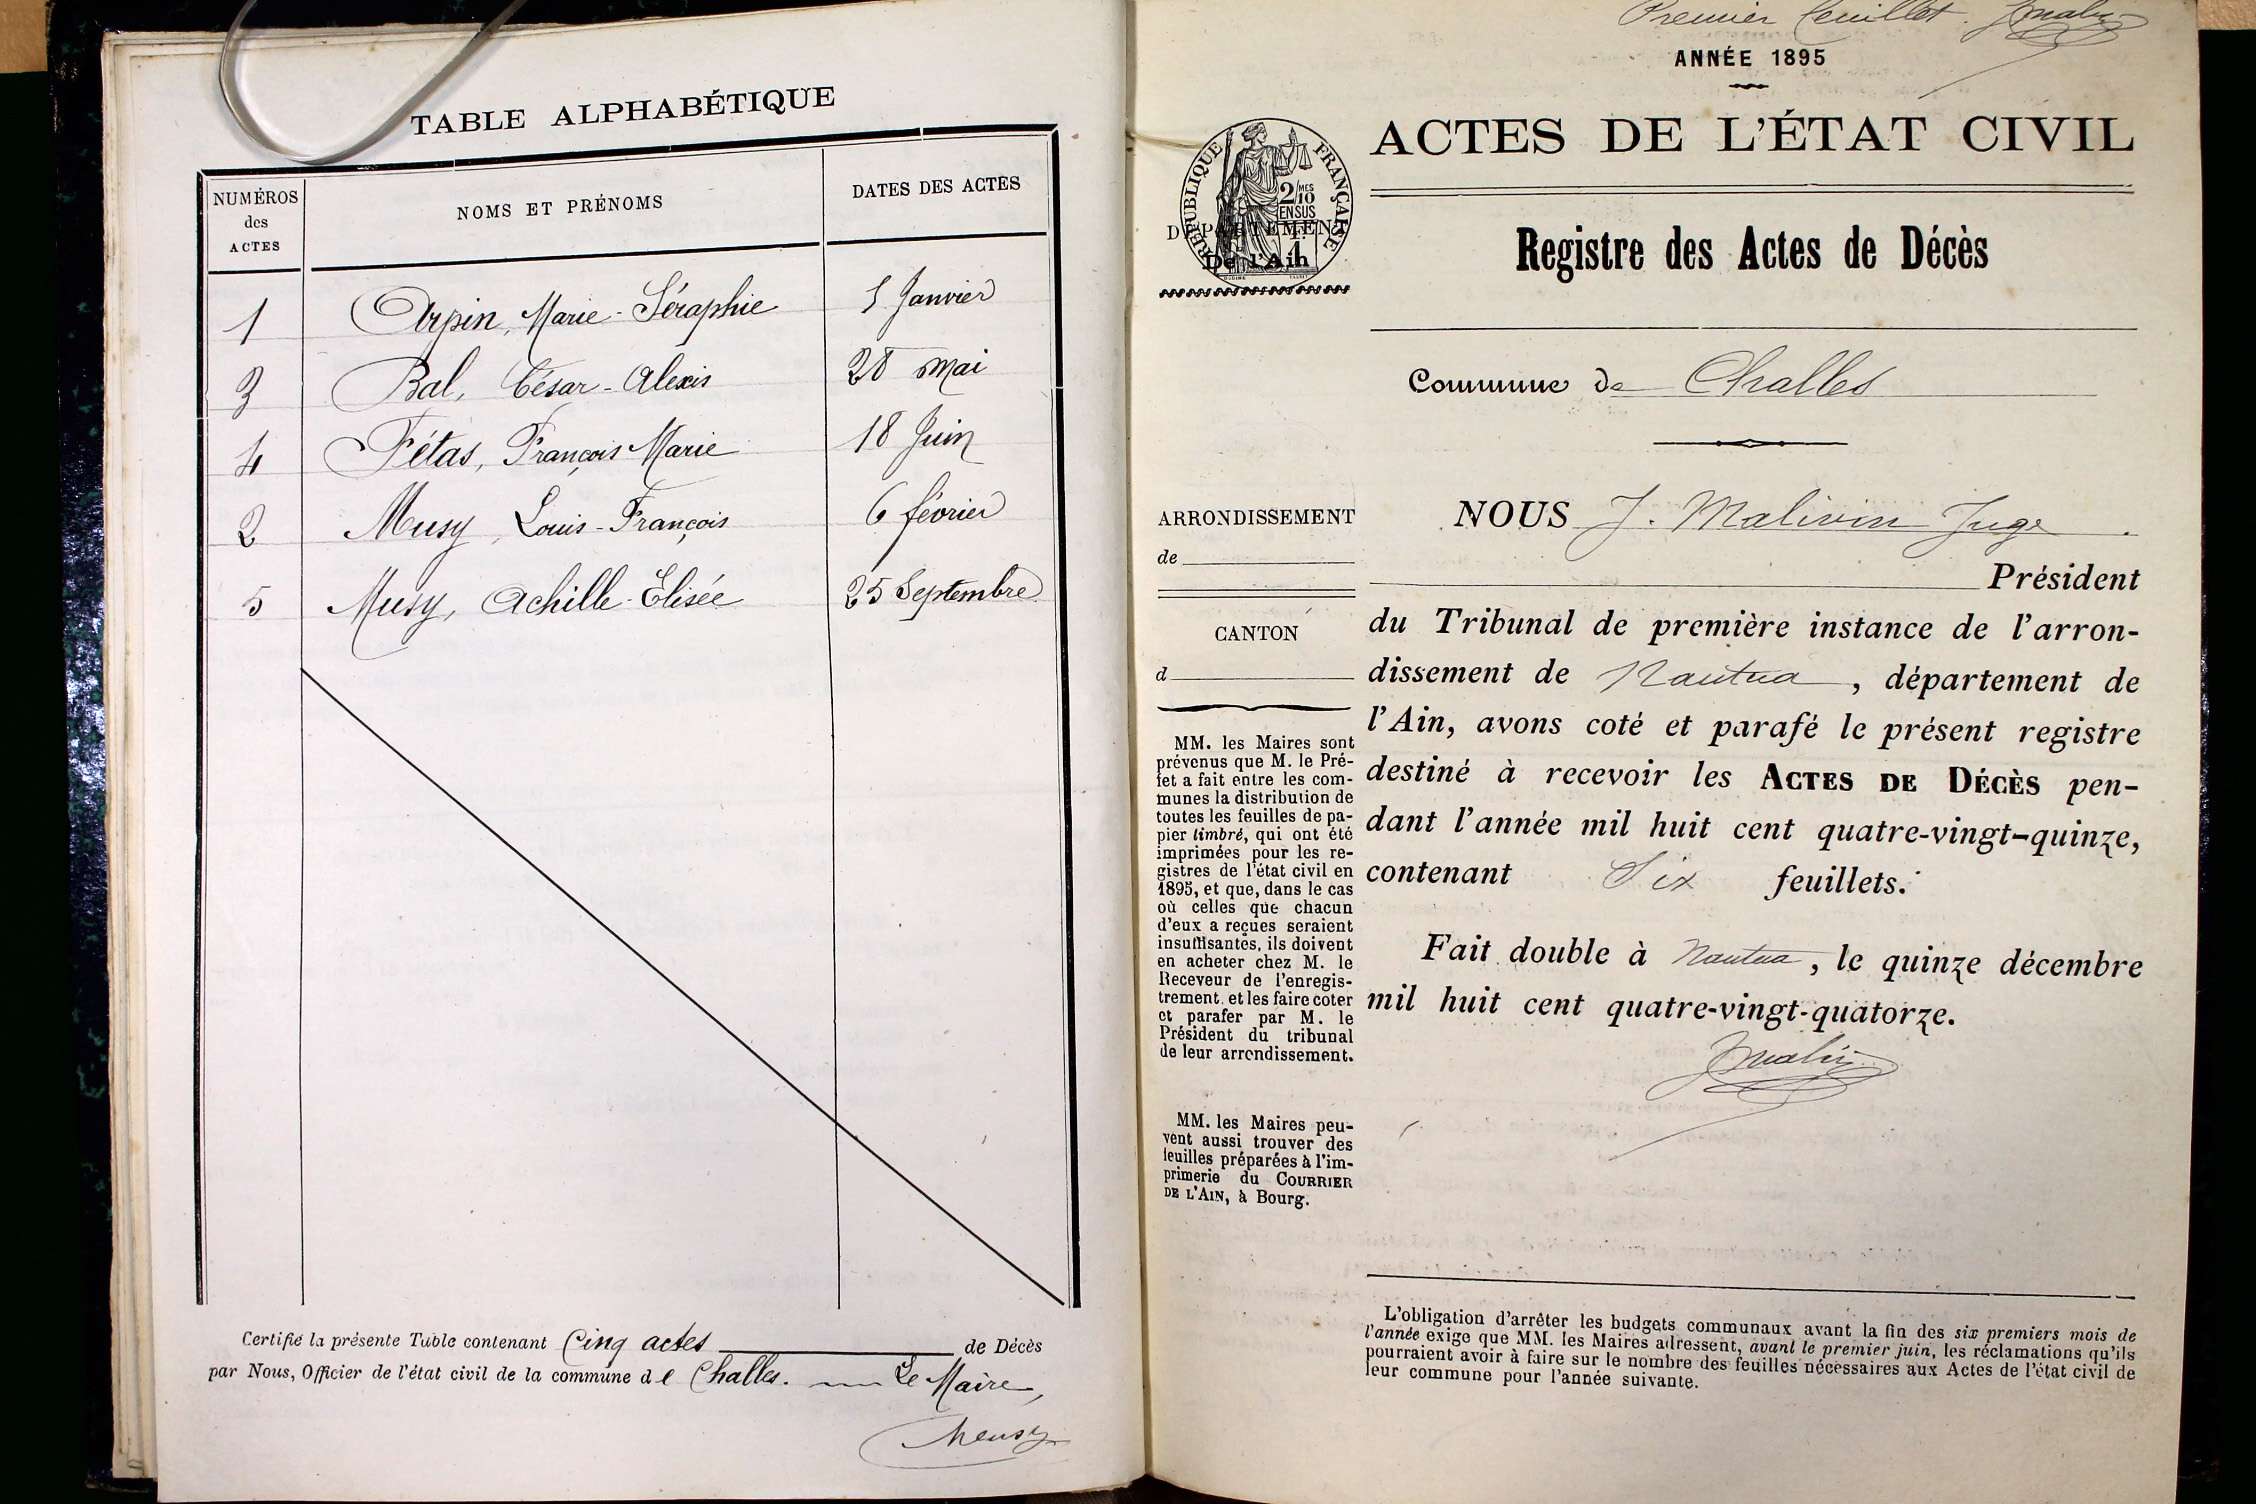 TABLE ALPHABÉTIQUE
NUMÉROS des ACTES
NOMS ET PRÉNOMS
DATES DES ACTES
1 Arpin, Marie-Séraphie 5 Janvier
3 Bal, César-Alexis 28 mai
4 Fétas, François Marie 18 Juin
2 Musy, Louis-François 6 février
5 Musy, Achille-Elisée 25 Septembre
Certifié la présente Table contenant Cinq actes de Décès
par Nous, Officier de l'état civil de la commune de Challes. Le Maire,
Premier feuillet.
ANNÉE 1895
ACTES DE L'ÉTAT CIVIL
RÉPUBLIQUE FRANÇAISE
2/10 MES
EN SUS
DÉPARTEMENT
De l'Ain
Registre des Actes de Décès
Commune de Challes
ARRONDISSEMENT
de
CANTON
d
MM. les Maires sont
prévenus que M. le Pré-
fet a fait entre les com-
munes la distribution de
toutes les feuilles de pa-
pier timbré, qui ont été
imprimées pour les re-
gistres de l'état civil en
1895, et que, dans le cas
où celles que chacun
d'eux a reçues seraient
insuffisantes, ils doivent
en acheter chez M. le
Receveur de l'enregis-
trement et les faire coter
et parafer par M. le
Président du tribunal
de leur arrondissement.
MM. les Maires peu-
vent aussi trouver des
feuilles préparées à l'im-
primerie du COURRIER
DE L'AIN, à Bourg.
NOUS J. Malivin Juge
Président
du Tribunal de première instance de l'arron-
dissement de Nantua, département de
l'Ain, avons coté et parafé le présent registre
destiné à recevoir les ACTES DE DÉCÈS pen-
dant l'année mil huit cent quatre-vingt-quinze,
contenant Six feuillets.
Fait double à Nantua, le quinze décembre
mil huit cent quatre-vingt-quatorze.
L'obligation d'arrêter les budgets communaux avant la fin des six premiers mois de
l'année exige que MM. les Maires adressent, avant le premier juin, les réclamations qu'ils
pourraient avoir à faire sur le nombre des feuilles nécessaires aux Actes de l'état civil de
leur commune pour l'année suivante.